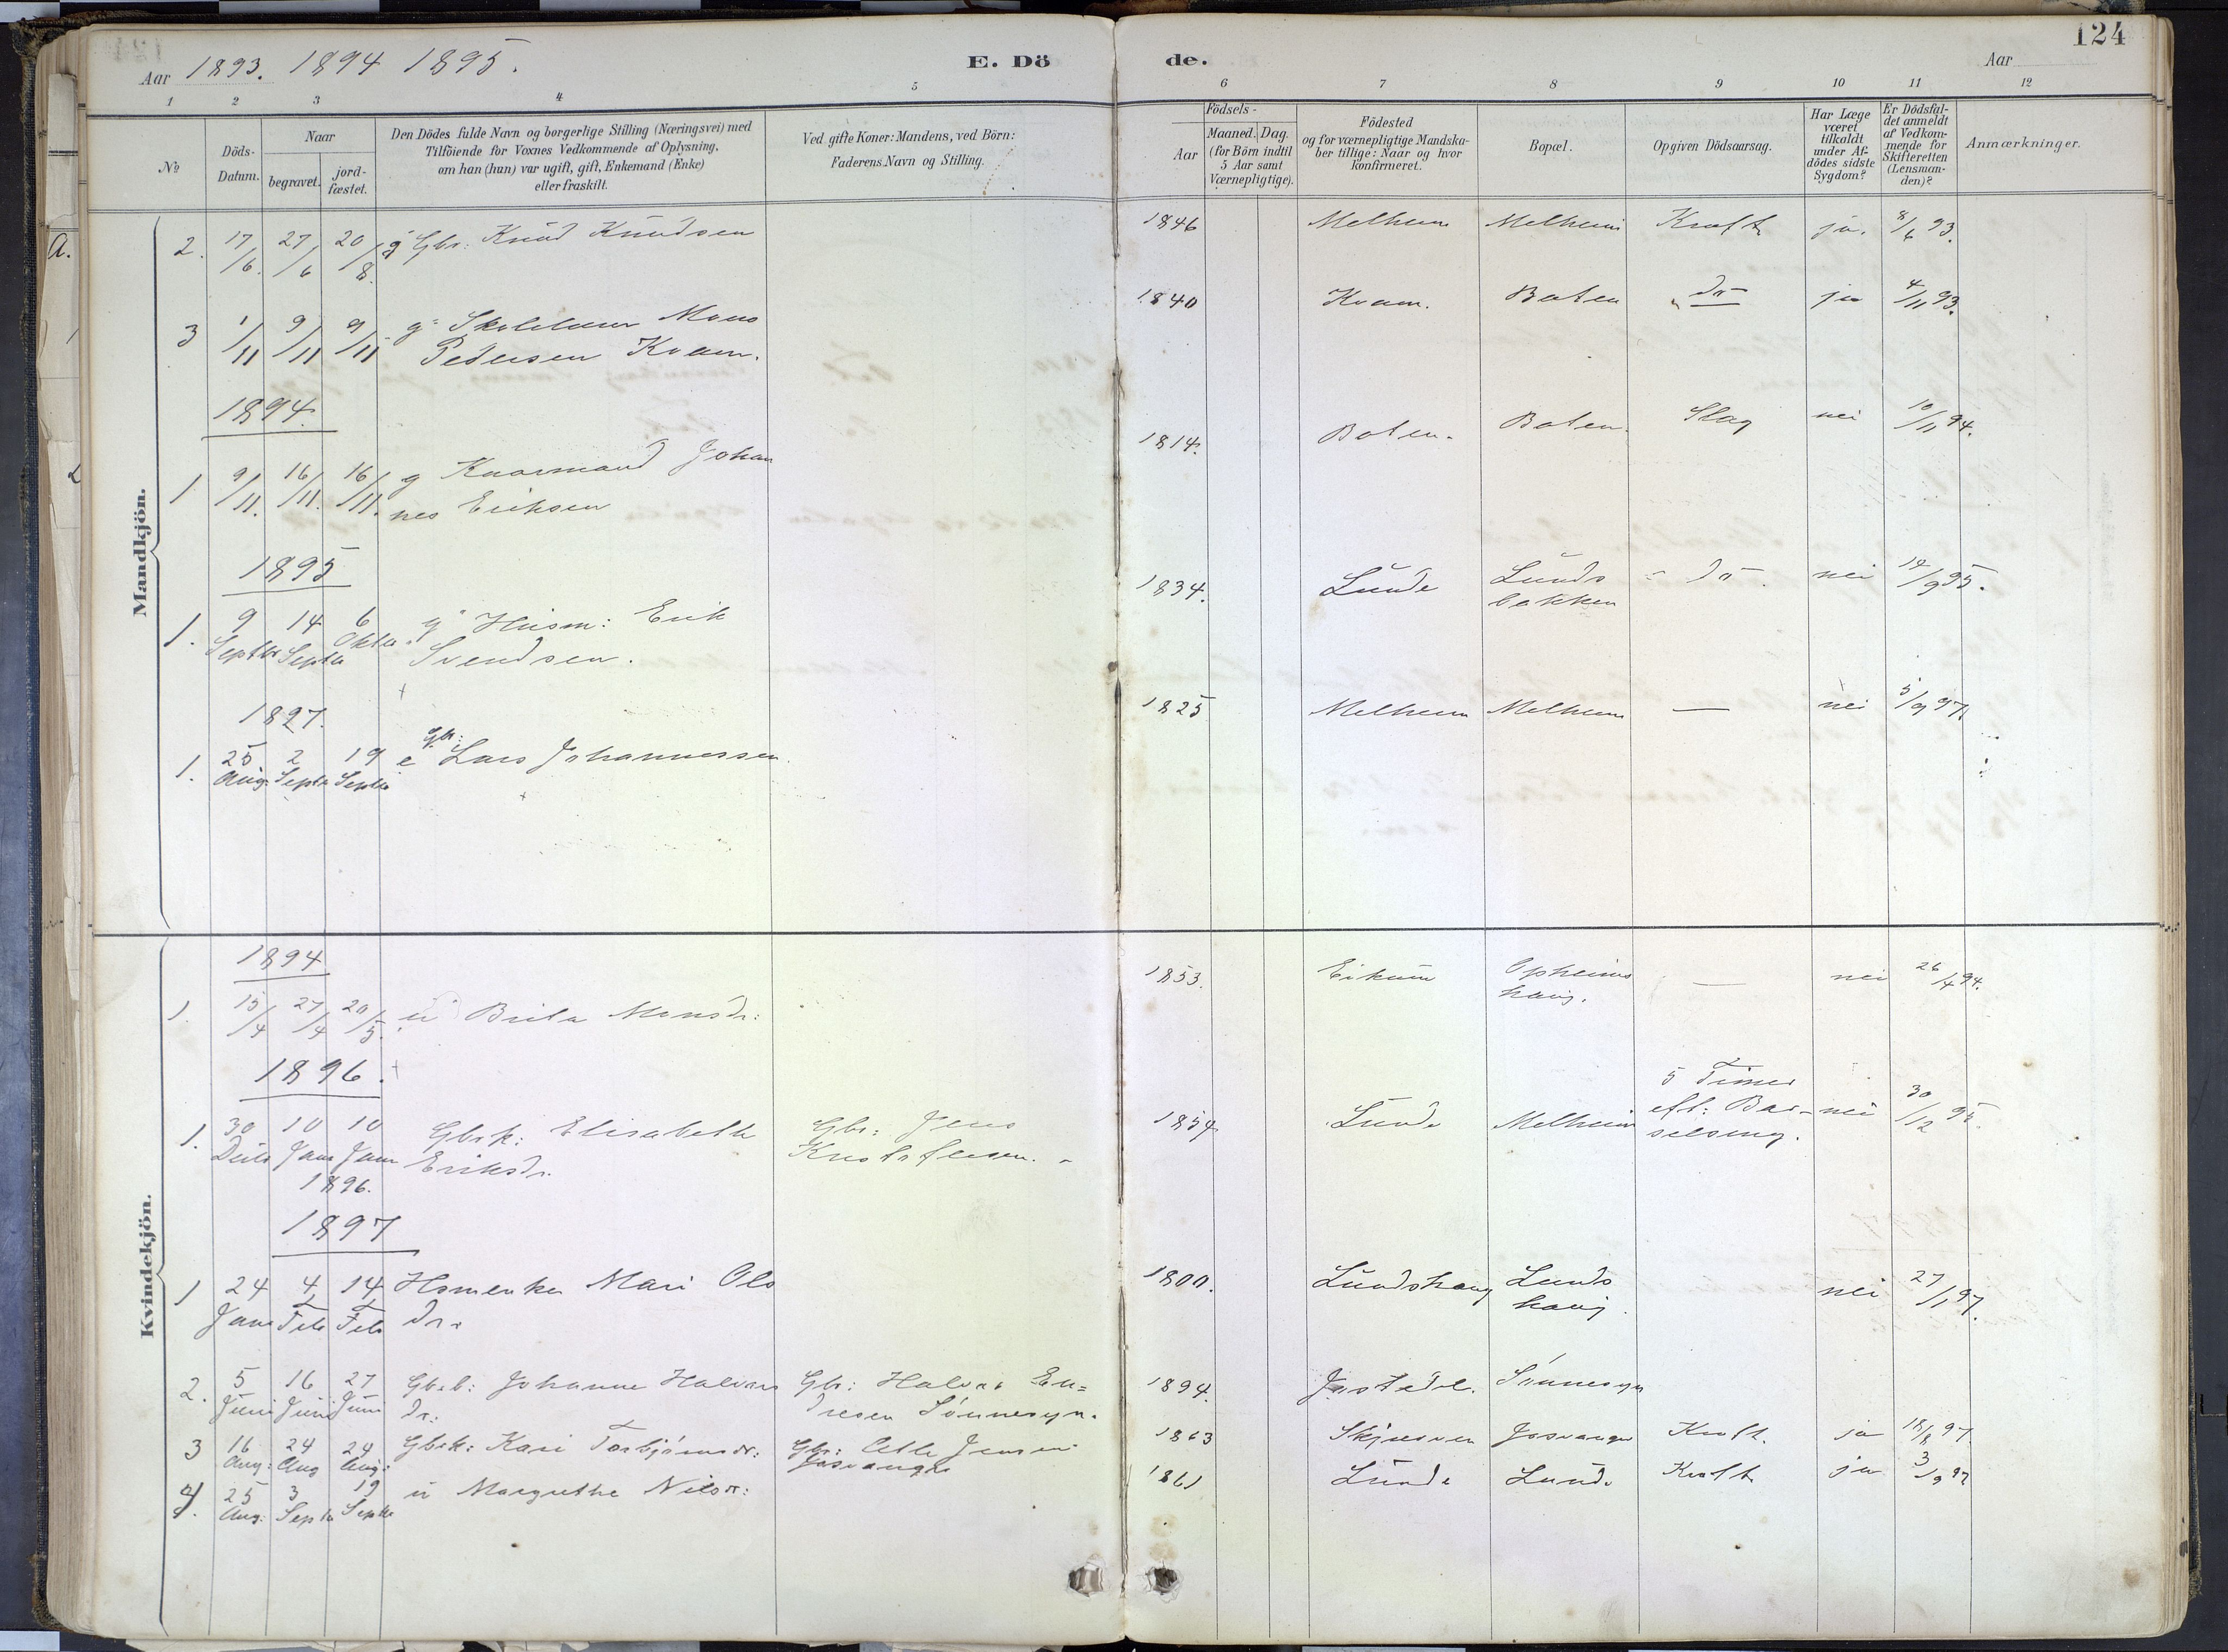 124
Aar 1893. 1894 1895.
E. Döde.
Aar
1 2 3 4 5 6 7 8 9 10 11 12
No
Döds-Datum.
Naar
begravet.
jord-fæstet.
Den Dödes fulde Navn og borgerlige Stilling (Næringsvei) med
Tilföiende for Voxnes Vedkommende af Oplysning,
om han (hun) var ugift, gift, Enkemand (Enke)
eller fraskilt.
Ved gifte Koner: Mandens, ved Börn:
Faderens Navn og Stilling.
Födsels-
Aar
Maaned. Dag.
(for Börn indtil
5 Aar samt
Værnepligtige).
Födested
og for værnepligtige Mandska-
ber tillige: Naar og hvor
konfirmeret.
Bopæl.
Opgiven Dödsaarsag.
Har Læge
været
tilkaldt
under Af-
dödes sidste
Sygdom?
Er Dödsfal-
det anmeldt
af Vedkom-
mende for
Skifteretten
(Lensman-
den)?
Anmærkninger.
Mandkjön.
2. 17/6. 27/6 20/8. g Gbr: Knud Knudsen 1846 Melheim Melheim Kræft ja. 8/6 93.
3 1/11 9/11 9/11 g Skolelærer Mons
Pedersen Kvam. 1840 Kvam. Boten do ja 4/11 93.
1894.
1 9/11. 16/11. 16/11. g Kaarmand Johan
nes Eriksen 1814. Boten. Boten. Slag nei 10/11 94.
1895
1. 9 Septbr 14 Septbr 6 Oktbr. g Husm: Erik
Svendsen. 1834. Lunde Lunds
bakken do. nei 14/9 95.
1897.
1. 25 Aug: 2 Septbr 19 Septbr e Gbr: Lars Johannessen. 1825 Melheim Melheim — nei 5/9 97.
Kvindekjön.
1894
1. 15/4 27/4 20/5. u Brita Monsdr: 1853. Eikum Opheims
haug. — nei 26/4 94.
1896.
1. 30 Decbr 10 Janr 10 Janr
1896. Gbrk: Elisabeth
Eriksdr. Gbr: Jens
Kristoffersen. 1854. Lunde Melheim 5 Timer
eft: Bar-
selseng. nei 30/12 95.
1897
1 24 Janr 4 Febr 14 Febr Hsmenke Mari Ols
dr. 1800. Lundshaug Lunds
haug. nei 27/1 97.
2. 5 Juni 16 Juni 27 Juni Gbrb: Johanne Halvars
dr: Gbr: Halvar En=
dresen Sönnesyn. 1894. Jostedal. Sönnesyn
3 16 Aug: 24 Aug 24 Aug: Gbrk: Kari Torbjörnsdr: Gbr: Atle Jensen
Josvanger 1863 Josvanger Kræft. ja 18/8 97.
4. 25 Aug: 3 Septbr 19 Septbr u Margrethe Nilsdr: 1861 Lunde Lunde Kræft ja 3/9 97